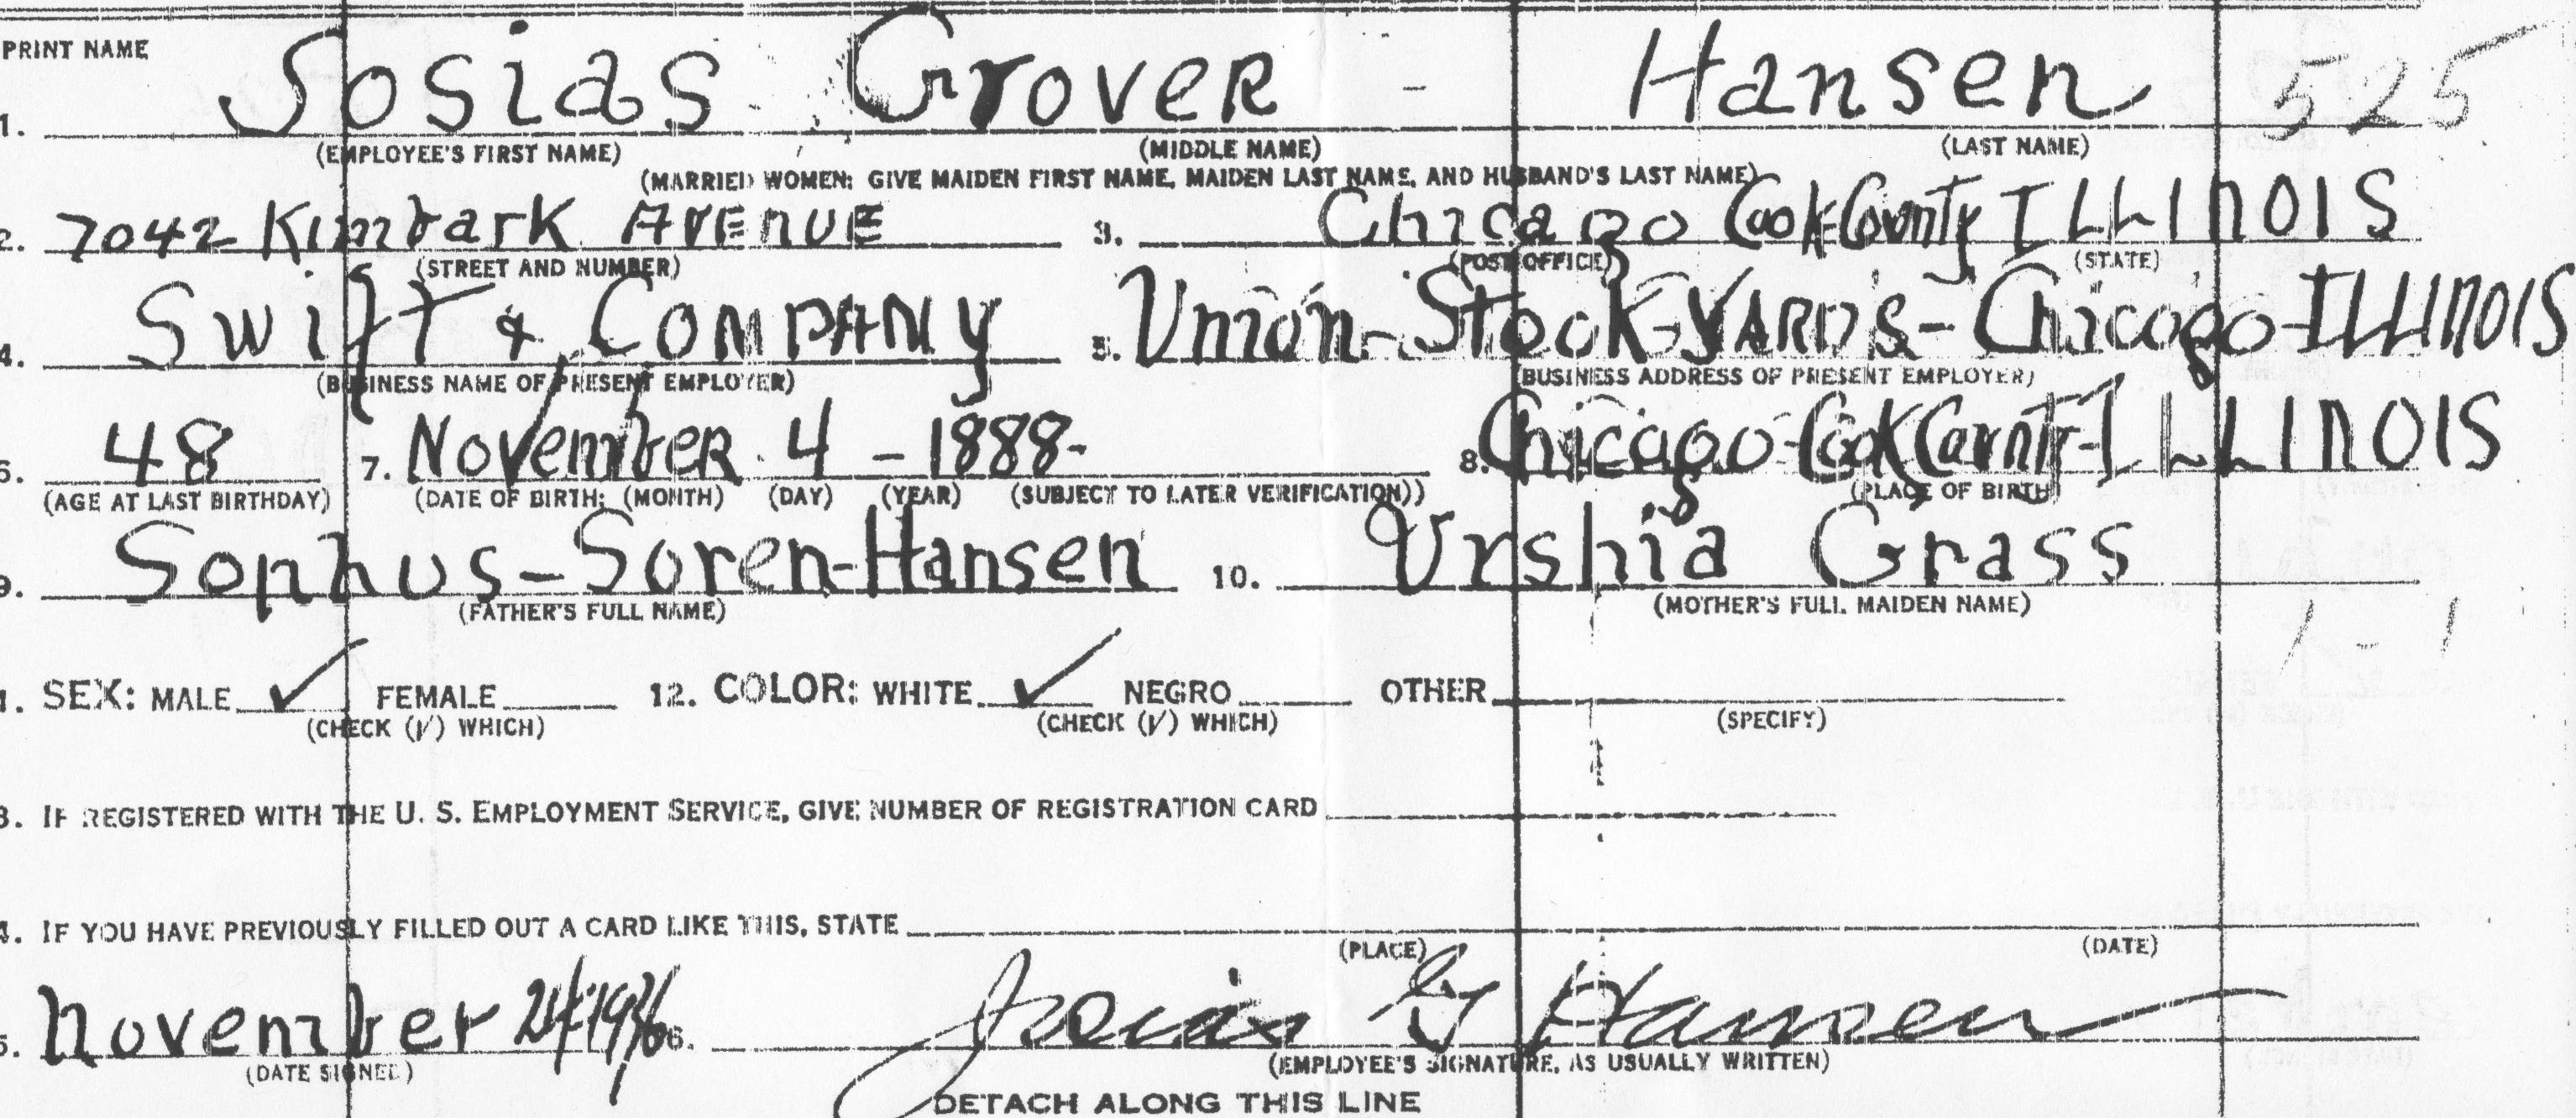 PRINT NAME
1. Josias Grover - Hansen 525
(EMPLOYEE'S FIRST NAME) (MIDDLE NAME) (LAST NAME)
(MARRIED WOMEN: GIVE MAIDEN FIRST NAME, MAIDEN LAST NAME, AND HUSBAND'S LAST NAME)
2. 7042 Kimbark AvEnUE 3. Chicago Cook County ILLInOIS
(STREET AND NUMBER) (POST OFFICE) (STATE)
4. Swift & COMPANy 5. Union-StocK-YARDS-Chicago-ILLInOIS
(BUSINESS NAME OF PRESENT EMPLOYER) (BUSINESS ADDRESS OF PRESENT EMPLOYER)
6. 48 7. November 4 - 1888- 8. Chicago-Cook County-ILLInOIS
(AGE AT LAST BIRTHDAY) (DATE OF BIRTH: (MONTH) (DAY) (YEAR) (SUBJECT TO LATER VERIFICATION)) (PLACE OF BIRTH)
9. Sophus-Soren-Hansen 10. Urshia Grass
(FATHER'S FULL NAME) (MOTHER'S FULL MAIDEN NAME)
1-1
1. SEX: MALE ✓ FEMALE 12. COLOR: WHITE ✓ NEGRO OTHER
(CHECK (✓) WHICH) (CHECK (✓) WHICH) (SPECIFY)
3. IF REGISTERED WITH THE U. S. EMPLOYMENT SERVICE, GIVE NUMBER OF REGISTRATION CARD
4. IF YOU HAVE PREVIOUSLY FILLED OUT A CARD LIKE THIS, STATE
(PLACE) (DATE)
5. november 6. Josias G Hansen
(DATE SIGNED) (EMPLOYEE'S SIGNATURE, AS USUALLY WRITTEN)
DETACH ALONG THIS LINE